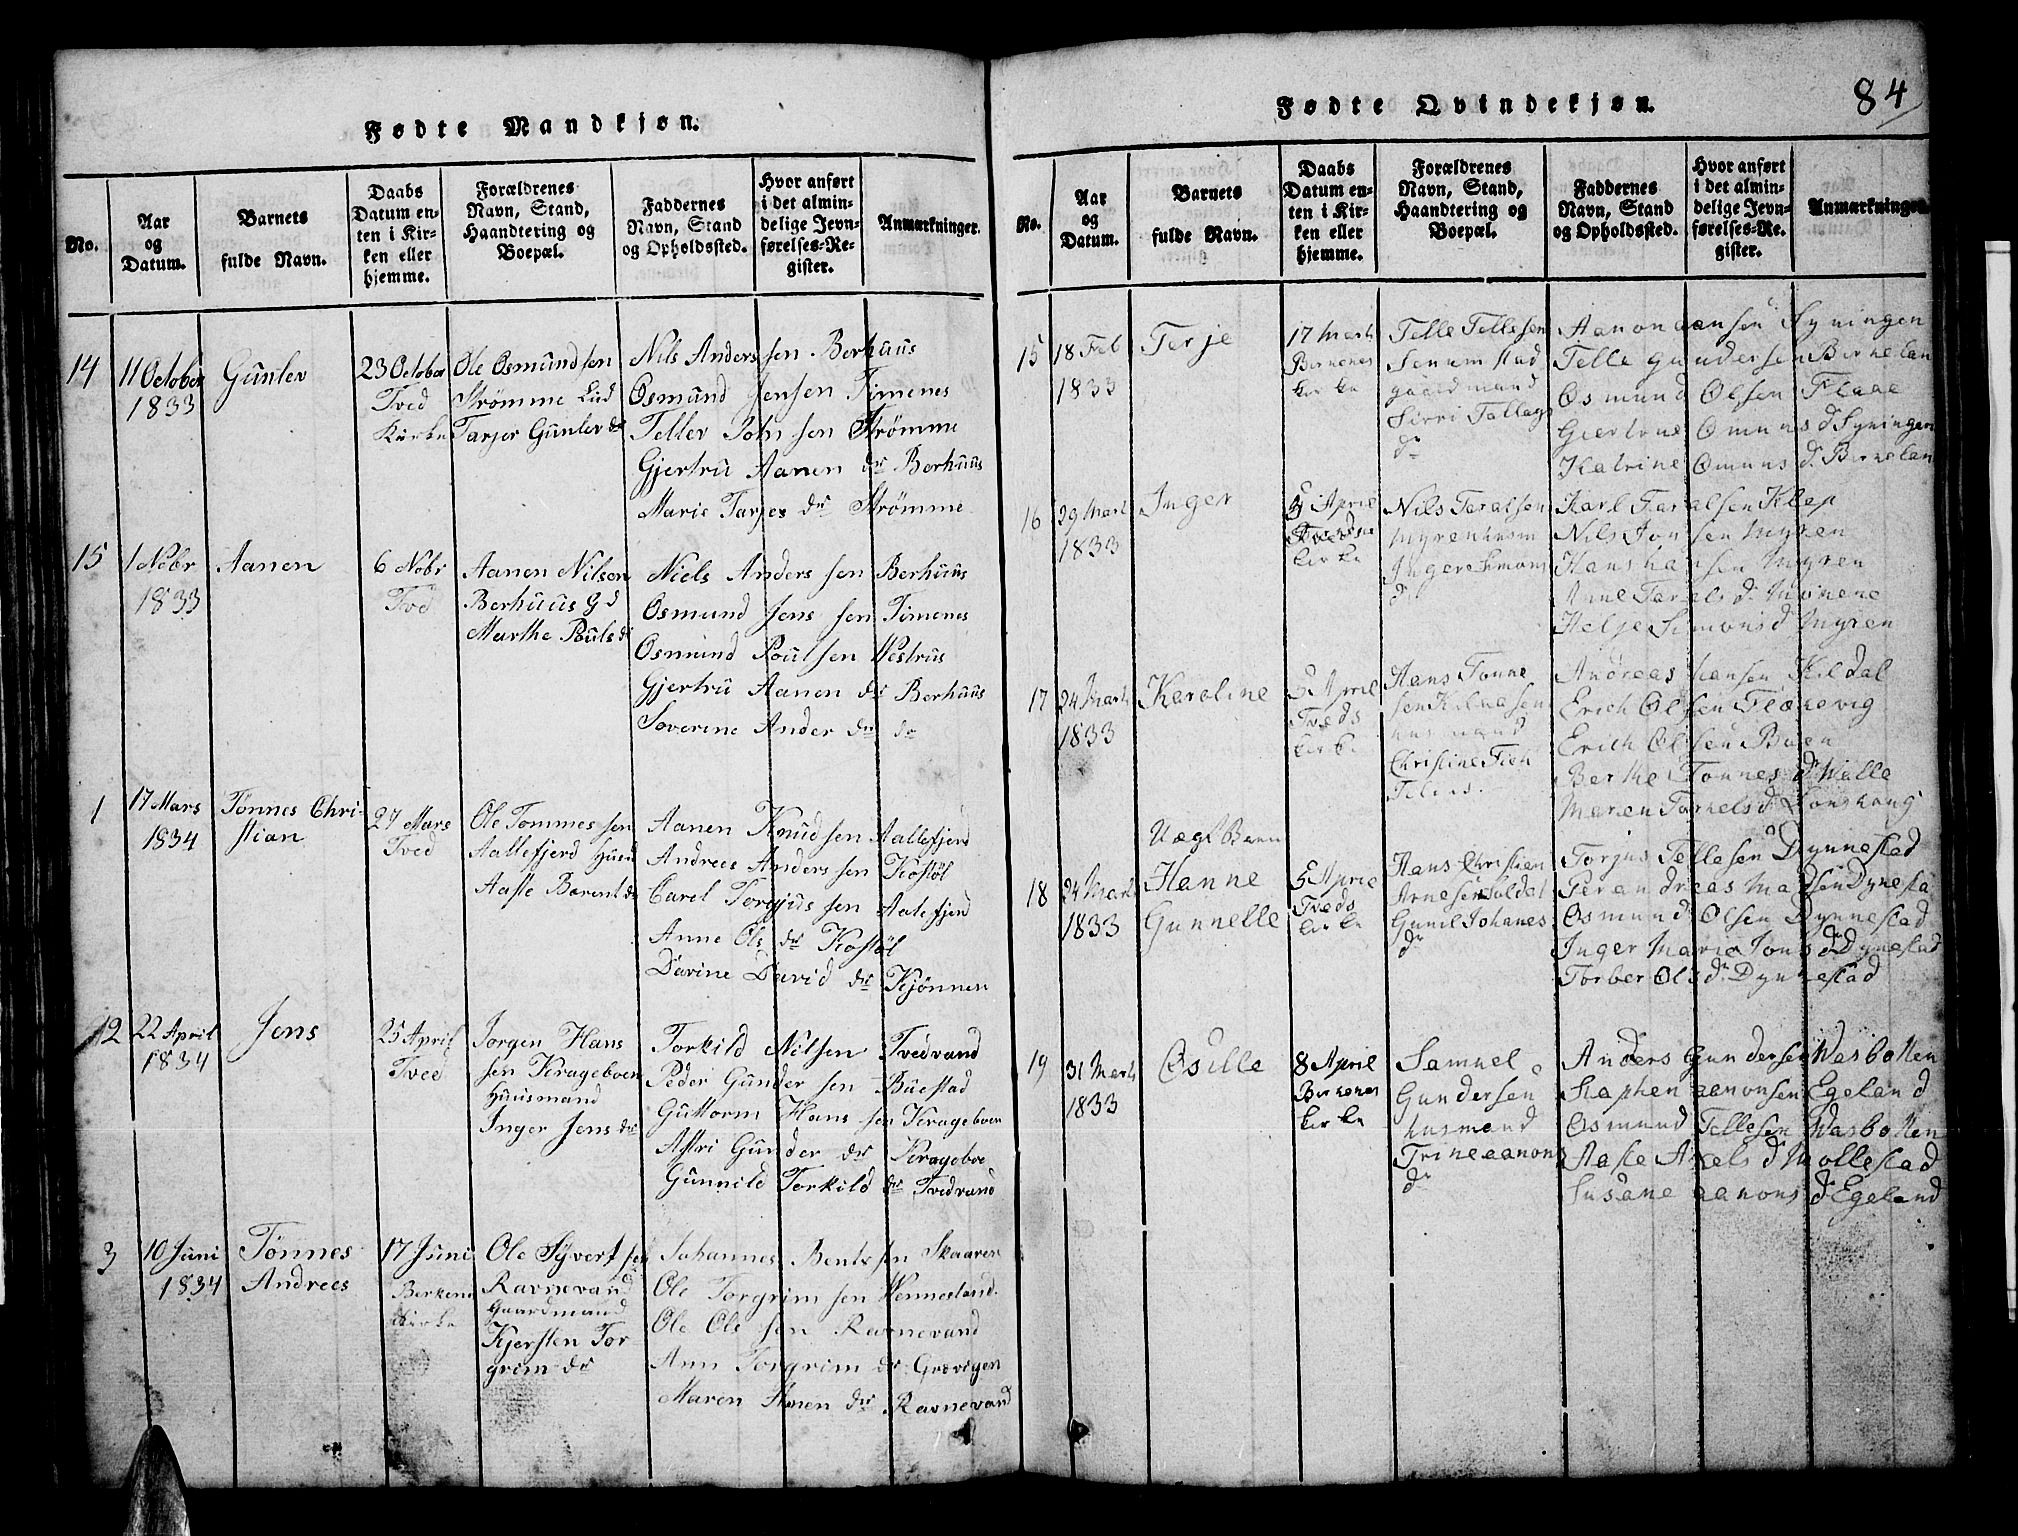 Fødte Mandkjøn.
No.
Aar
og
Datum.
Barnets
fulde Navn.
Daabs
Datum en-
ten i Kir-
ken eller
hjemme.
Forældrenes
Navn, Stand,
Haandtering og
Boepæl.
Faddernes
Navn, Stand
og Opholdssted.
Hvor anført
i det almin-
delige Jevn-
førelses-Re-
gister.
Anmærkninger.
14
11 October
1833
Gunlev
23 October
Tved
Kirke
Ole Osmundsen
Strømme
Tarjer Gunlev dr
Nils Andersen Berhuus
Osmund Jensen Timenes
Tellev Johnsen Strømme
Gjertru Aanen dr Berhuus
Marie Tarjes dr Strømme
15
1 Nobr
1833
Aanen
6 Nobr
Tved
Aanen Nilsen
Berhuus Gd
Marthe Pouls dr
Niels Anderssen Berhuus
Osmund Jenssen Timenes
Osmund Poulsen Westrus
Gjertru Aanen dr Berhuus
Soverine Ander dr do
1
17 Mars
1834
Tønnes Chri-
stian
27 Mars
Tved
Ole Tommessen
Aallefjerd
Aaste Barent dr
Aanen Knudsen Aallefjerd
Andrees Anderssen Kostøl
Carel Torgjussen Aalefjerd
Anne Ols dr Kostøl
Davine David dr Kjønnes
2
22 April
1834
Jens
25 April
Tved
Jorgen Hans
sen Krageboen
Huusmand
Inger Jens dr
Torkild Nilsen Tvedvand
Peder Gundersen Buestad
Guttorm Hanssen Krageboen
Astri Gunder dr Krageboe
Gunnild Torkild dr Tvedvand
3
10 Juni
1834
Tønnes
Andrees
17 Juni
Berkene
Kirke
Ole Syvertsen
Ravnevand
Gaardmand
Kjersten Tor
grim dr
Johannes Bentssen Skaaren
Ole Torgrimsen Wennesland
Ole Olssen Ravnevand
Ann Torgrim dr Grøvigen
Maren Aanen dr Ravnevand
84
Fødte Qvindekjøn.
No.
Aar
og
Datum.
Barnets
fulde Navn.
Daabs
Datum en-
ten i Kir-
ken eller
hjemme.
Forældrenes
Navn, Stand,
Haandtering og
Boepæl.
Faddernes
Navn, Stand
og Opholdssted.
Hvor anført
i det almin-
delige Jevn-
førelses-Re-
gister.
Anmærkninger.
15
18 Feb
1833
Terje
17 Marts
Birkenes
kirke
Telle Tellesen
Senumstad
gaardmand
Sirri Tallags
dr
Aanon aansen Syningen
Telle gundersen Birkelan
Osmund Olsen Flaae
Giertrue Omuns d Syningen
Katrine Omuns d Birkelan
16
29 Mart
1833
Inger
5 April
Tveds
kirke
Nils Taralsen
Myren husm
Inger Simons
dr
Karl Taralsen Klep
Nils Jonsen Myren
Hans hansen Myren
Anne Tarkels d
Helje Simons d Myren
17
24 Marts
1833
Karoline
5 April
Tveds
kirke
Hans Tonne
sen
husmand
Christine
Andreas hansen Kildal
Erich Olsen Flakevig
Erich Olsen Buen
Berthe Tonnes d Walle
Maren Torkels d
18
24 Marts
1833
Uægt Baren
Hanne
Gunnelle
5 April
Tveds
kirke
Hans Christian
Arnesen
Gunil Johanes
dr
Torjus Tellesen Dynnestad
Per andreas Madsen Dynesta
Osmund Olsen Dynnestad
Inger Maria Jons dr Dynestad
Torber Ols dr Dynnestad
19
31 Marts
1833
Osille
8 April
Birkenes
kirke
Samuel
Gundersen
husmand
Trine aanons
dr
Anders Gundersen Wasbotten
Staphen aanonsen Egeland
Osmund Tellesen Wasbotten
Aaste Axels d Mollestad
Susane aanons d Egeland